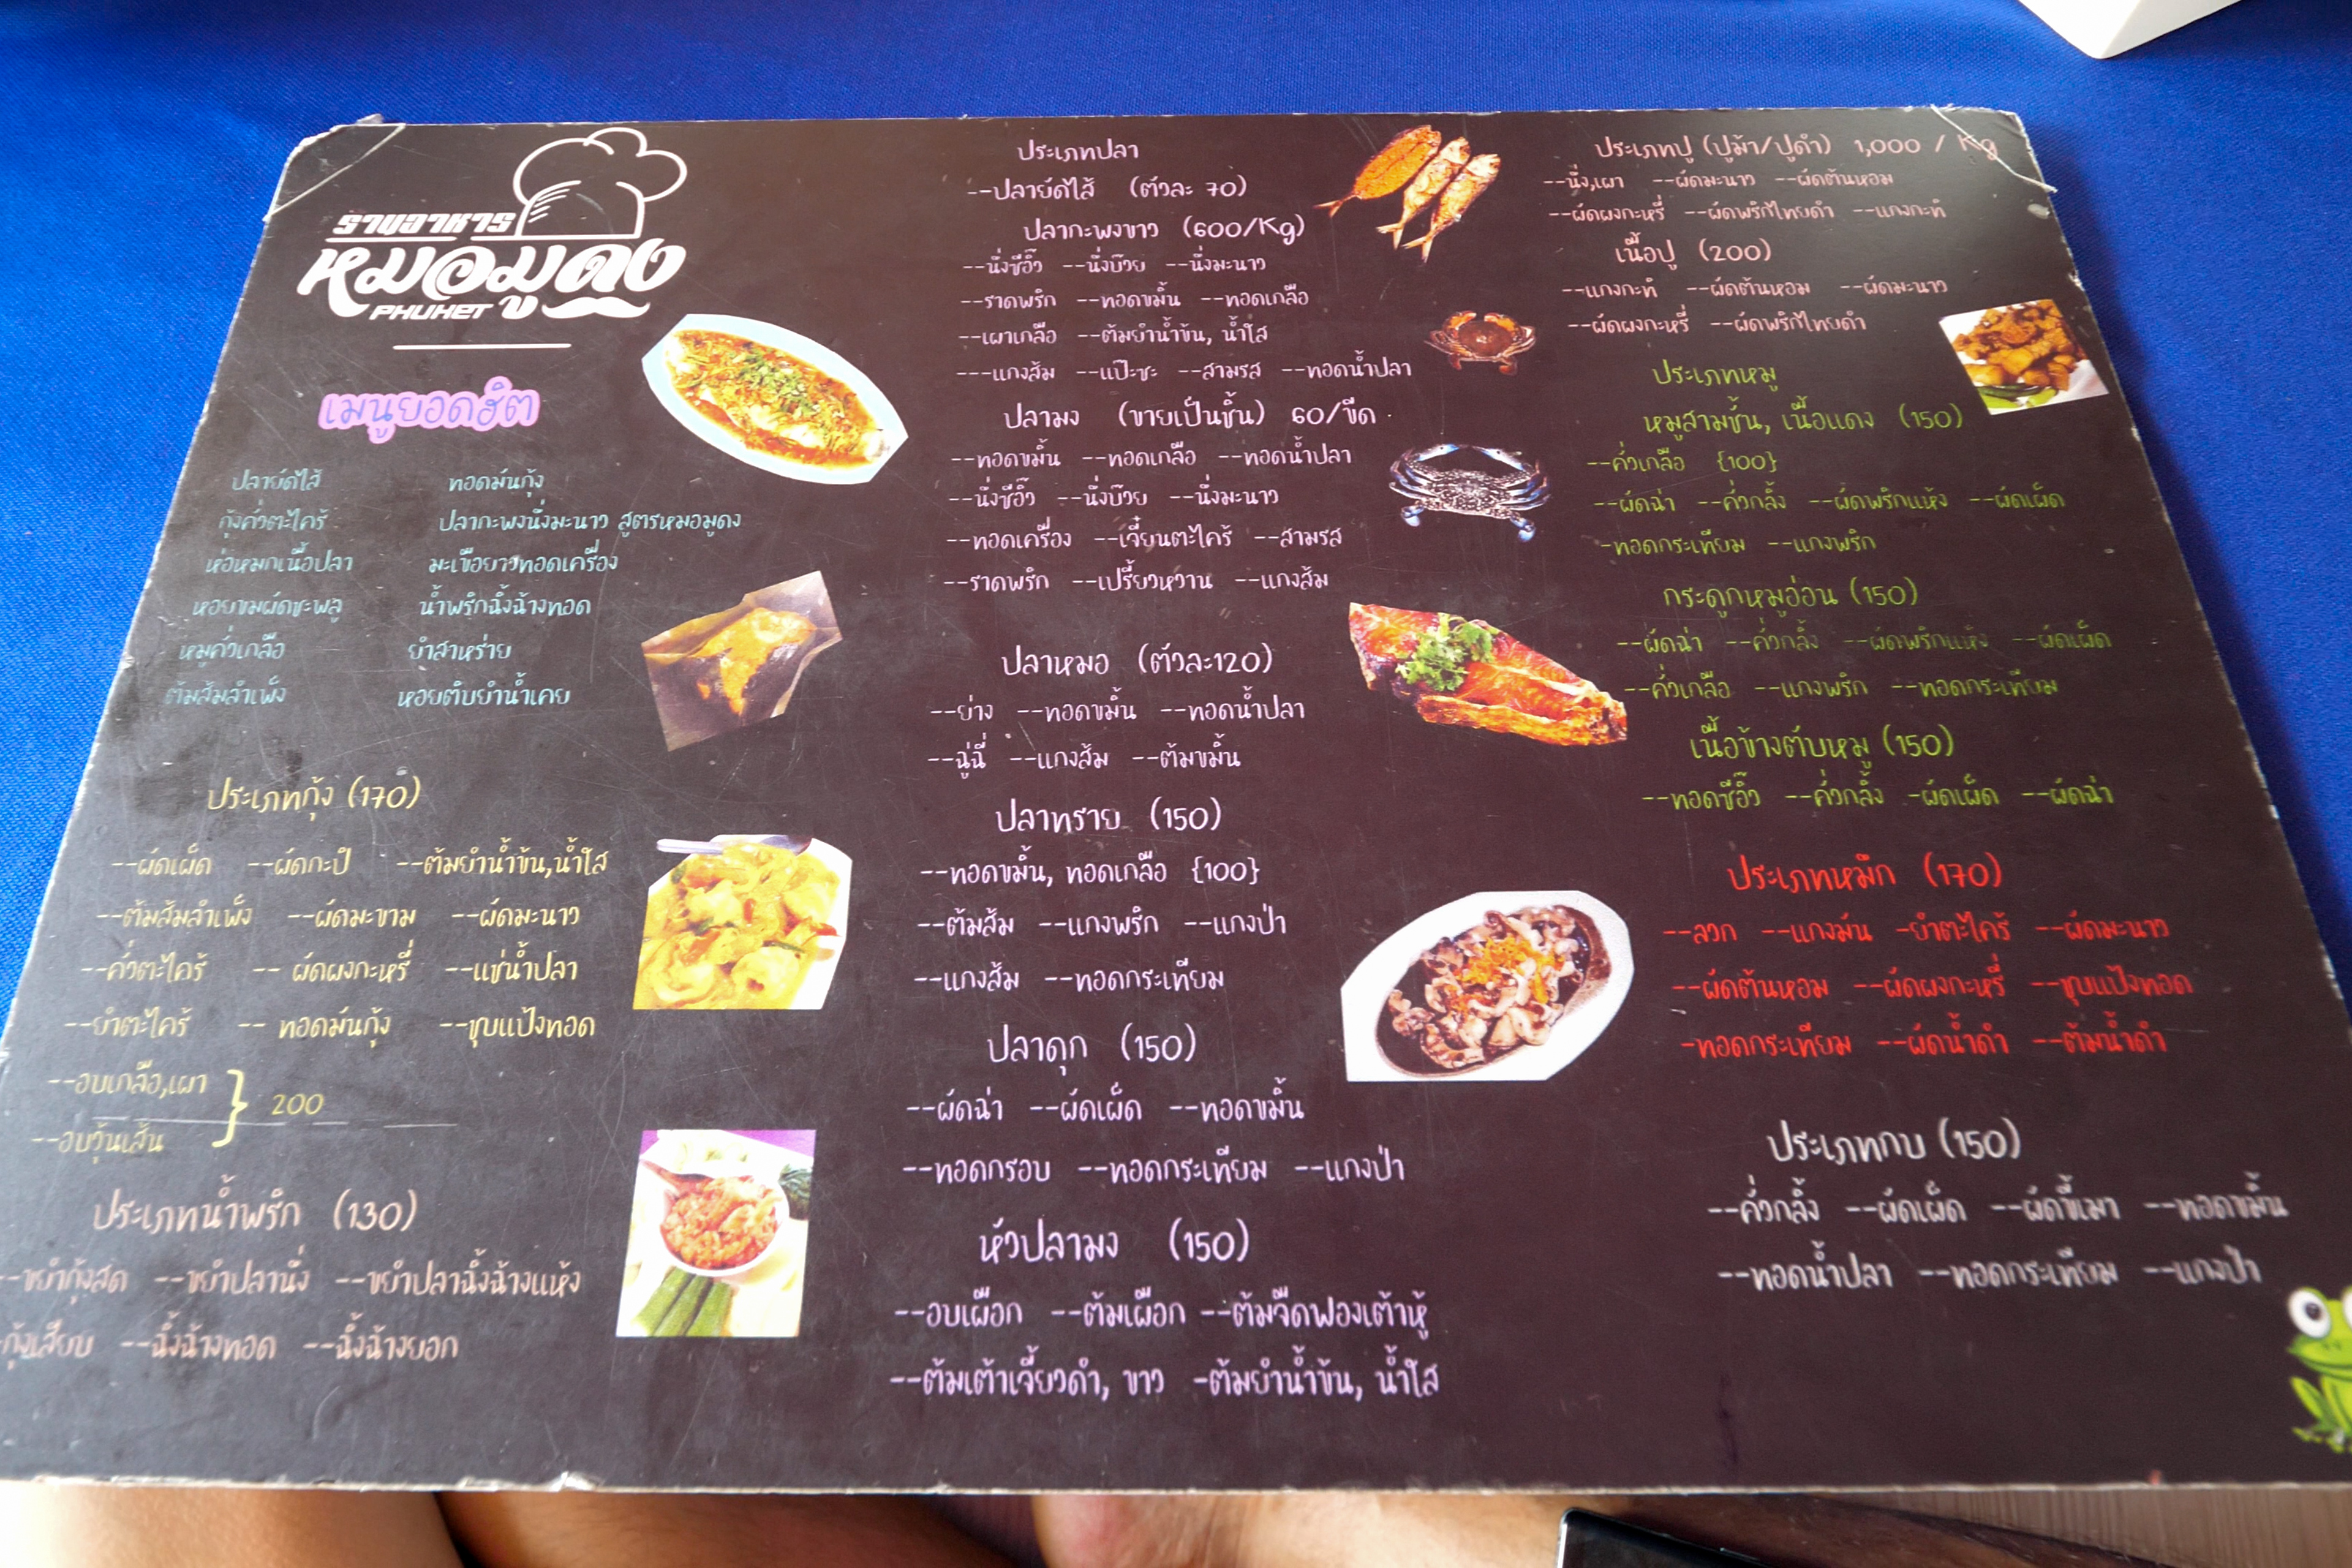 ร้านอาหาร
หมอมูดง
PHUKET
เมนูยอดฮิต
ปลายัดไส้ ทอดมันกุ้ง
กุ้งคั่วตะไคร้ ปลากะพงนึ่งมะนาว สูตรหมอมูดง
ห่อหมกเนื้อปลา มะเขือยาวทอดเครื่อง
หอยขมผัดชะพลู น้ำพริกฉิ้งฉ้างทอด
หมูคั่วเกลือ ยำสาหร่าย
ต้มส้มลำเพ็ง หอยติบยำน้ำเคย
ประเภทกุ้ง (170)
--ผัดเผ็ด --ผัดกะปิ --ต้มยำน้ำข้น,น้ำใส
--ต้มส้มลำเพ็ง --ผัดมะขาม --ผัดมะนาว
--คั่วตะไคร้ -- ผัดผงกะหรี่ --แช่น้ำปลา
--ยำตะไคร้ -- ทอดมันกุ้ง --ชุบแป้งทอด
--อบเกลือ,เผา
--อบวุ้นเส้น } 200
ประเภทน้ำพริก (130)
--ขยำกุ้งสด --ขยำปลานึ่ง --ขยำปลาฉิ้งฉ้างแห้ง
-กุ้งเสียบ --ฉิ้งฉ้างทอด --ฉิ้งฉ้างยอก
ประเภทปลา
--ปลายัดไส้ (ตัวละ 70)
ปลากะพงขาว (600/Kg)
--นึ่งซีอิ๊ว --นึ่งบ๊วย --นึ่งมะนาว
--ราดพริก --ทอดขมิ้น --ทอดเกลือ
--เผาเกลือ --ต้มยำน้ำข้น, น้ำใส
---แกงส้ม --แป๊ะซะ --สามรส --ทอดน้ำปลา
ปลามง (ขายเป็นชิ้น) 60/ขีด
--ทอดขมิ้น --ทอดเกลือ --ทอดน้ำปลา
--นึ่งซีอิ๊ว --นึ่งบ๊วย --นึ่งมะนาว
--ทอดเครื่อง --เจี๋ยนตะไคร้ --สามรส
--ราดพริก --เปรี้ยวหวาน --แกงส้ม
ปลาหมอ (ตัวละ120)
--ย่าง --ทอดขมิ้น --ทอดน้ำปลา
--ฉู่ฉี่ --แกงส้ม --ต้มขมิ้น
ปลาทราย (150)
--ทอดขมิ้น, ทอดเกลือ {100}
--ต้มส้ม --แกงพริก --แกงป่า
--แกงส้ม --ทอดกระเทียม
ปลาดุก (150)
--ผัดฉ่า --ผัดเผ็ด --ทอดขมิ้น
--ทอดกรอบ --ทอดกระเทียม --แกงป่า
หัวปลามง (150)
--อบเผือก --ต้มเผือก --ต้มจืดฟองเต้าหู้
--ต้มเต้าเจี้ยวดำ, ขาว -ต้มยำน้ำข้น, น้ำใส
ประเภทปู (ปูม้า/ปูดำ) 1,000 / Kg
--นึ่ง,เผา --ผัดมะนาว --ผัดต้นหอม
--ผัดผงกะหรี่ --ผัดพริกไทยดำ --แกงกะทิ
เนื้อปู (200)
--แกงกะทิ --ผัดต้นหอม --ผัดมะนาว
--ผัดผงกะหรี่ --ผัดพริกไทยดำ
ประเภทหมู
หมูสามชั้น, เนื้อแดง (150)
--คั่วเกลือ {100}
--ผัดฉ่า --คั่วกลิ้ง --ผัดพริกแห้ง --ผัดเผ็ด
-ทอดกระเทียม --แกงพริก
กระดูกหมูอ่อน (150)
--ผัดฉ่า --คั่วกลิ้ง --ผัดพริกแห้ง --ผัดเผ็ด
--คั่วเกลือ --แกงพริก --ทอดกระเทียม
เนื้อข้างตับหมู (150)
--ทอดซีอิ๊ว --คั่วกลิ้ง -ผัดเผ็ด --ผัดฉ่า
ประเภทหมึก (170)
--ลวก --แกงมัน -ยำตะไคร้ --ผัดมะนาว
--ผัดต้นหอม --ผัดผงกะหรี่ --ชุบแป้งทอด
-ทอดกระเทียม --ผัดน้ำดำ --ต้มน้ำดำ
ประเภทกบ (150)
--คั่วกลิ้ง --ผัดเผ็ด --ผัดขี้เมา --ทอดขมิ้น
--ทอดน้ำปลา --ทอดกระเทียม --แกงป่า